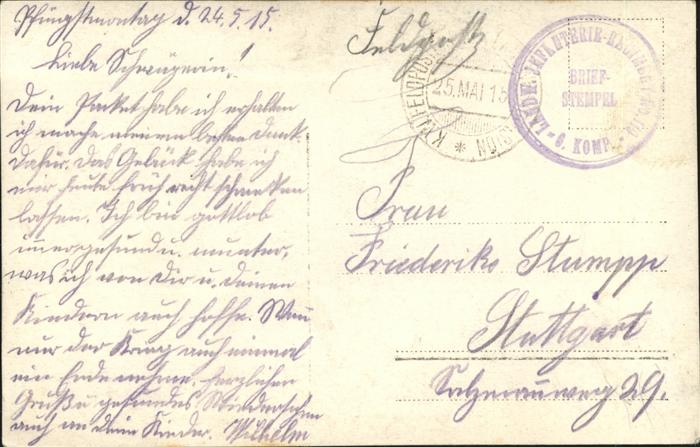 Pfingstmontag d. 24.5.15.
Liebe Schwägerin!
Dein Packet habe ich erhalten
ich sage meinen besten Dank
dafür. Das Gebäck habe ich
mir heute früh recht schmecken
lassen. Ich bin gottlob
immer gesund u. munter,
was ich von Dir u. deinen
Kindern auch hoffe. Wenn
nur der Krieg auch einmal
ein Ende nehme. Herzlichen
Gruß u gesundes Wiedersehen
auch an deine Kinder. Wilhelm
Feldpost
25.MAI 15
BRIEF-
STEMPEL
6. KOMP.
Frau
Friederike Stumpp
Stuttgart
29.